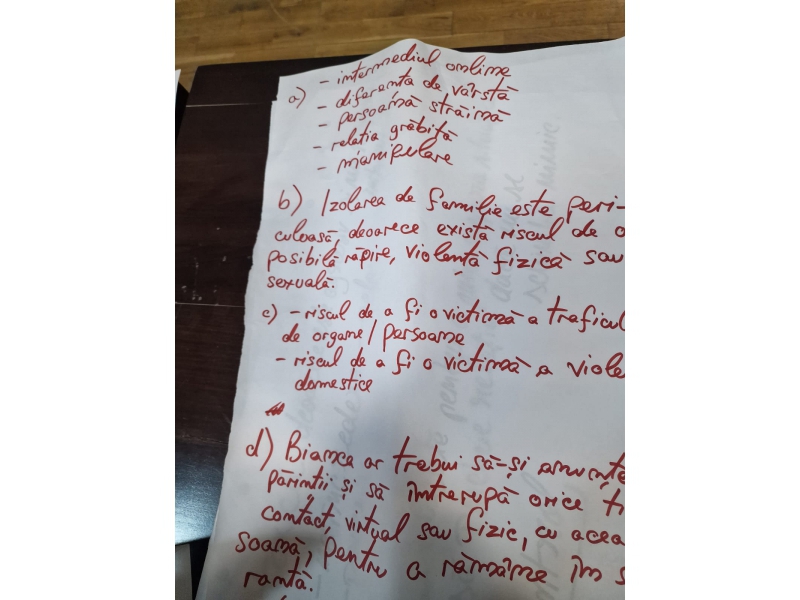 - intermediul online
a) - diferența de vârstă
- persoană străină
- relația grăbită
- manipulare
b) Izolarea de familie este peri-
culoasă, deoarece există riscul de o
posibilă răpire, violență fizică sau
sexuală.
c) - riscul de a fi o victimă a traficul
de organe/persoane
- riscul de a fi o victimă a viole
domestice
d) Bianca ar trebui să-și anunțe
părinții și să întrerupă orice ti
contact, virtual sau fizic, cu acea
soană, pentru a rămâne în s
ranță.